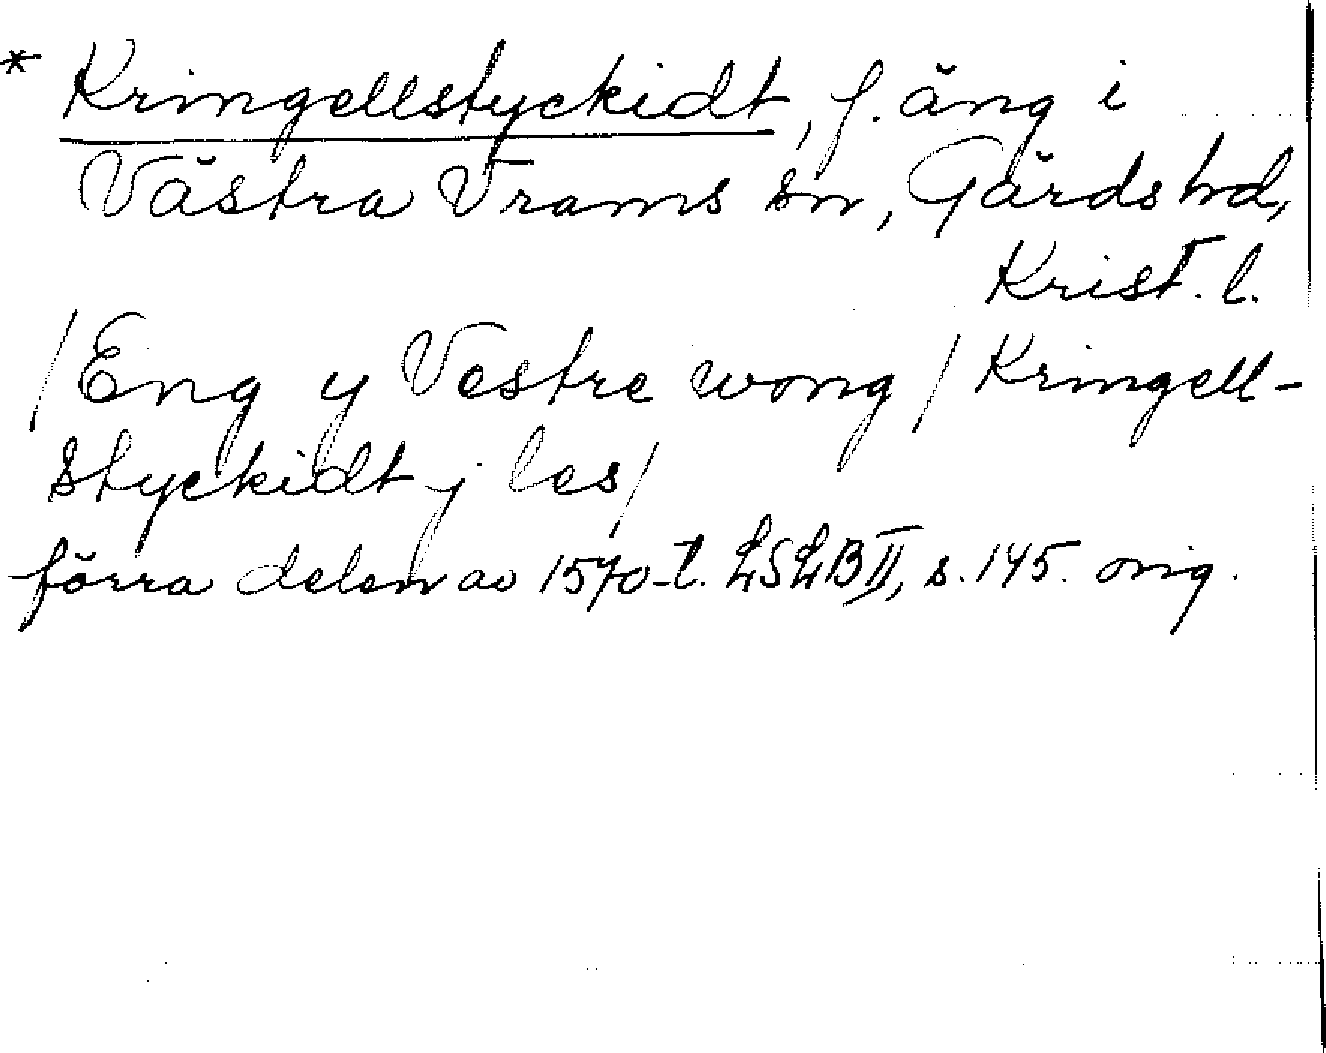 * Kringellstyckidt, f. äng i
Västra Vrams sn, Gärds hd,
Krist. l.
/Eng y Vestre wong/ Kringell-
styckidt j les/
förra delen av 1570-t. LSLB II, s. 145. orig.